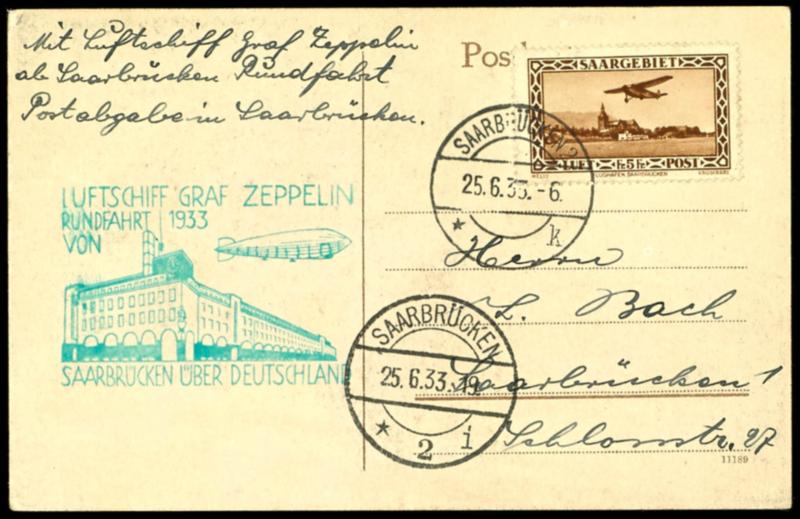 Mit Luftschiff Graf Zeppelin
ab Saarbrücken Rundfahrt
Postabgabe in Saarbrücken.
Post
SAARGEBIET
LUFT Fr. 5 Fr. POST
FLUGHAFEN SAARBRÜCKEN
SAARBRÜCKEN 2
25.6.33.-6.
* k
LUFTSCHIFF GRAF ZEPPELIN
RUNDFAHRT 1933
VON
SAARBRÜCKEN ÜBER DEUTSCHLAND
SAARBRÜCKEN
25.6.33.19.
* 2 i
Herrn
L. Bach
Saarbrücken 1
Schlosstr. 27
11189